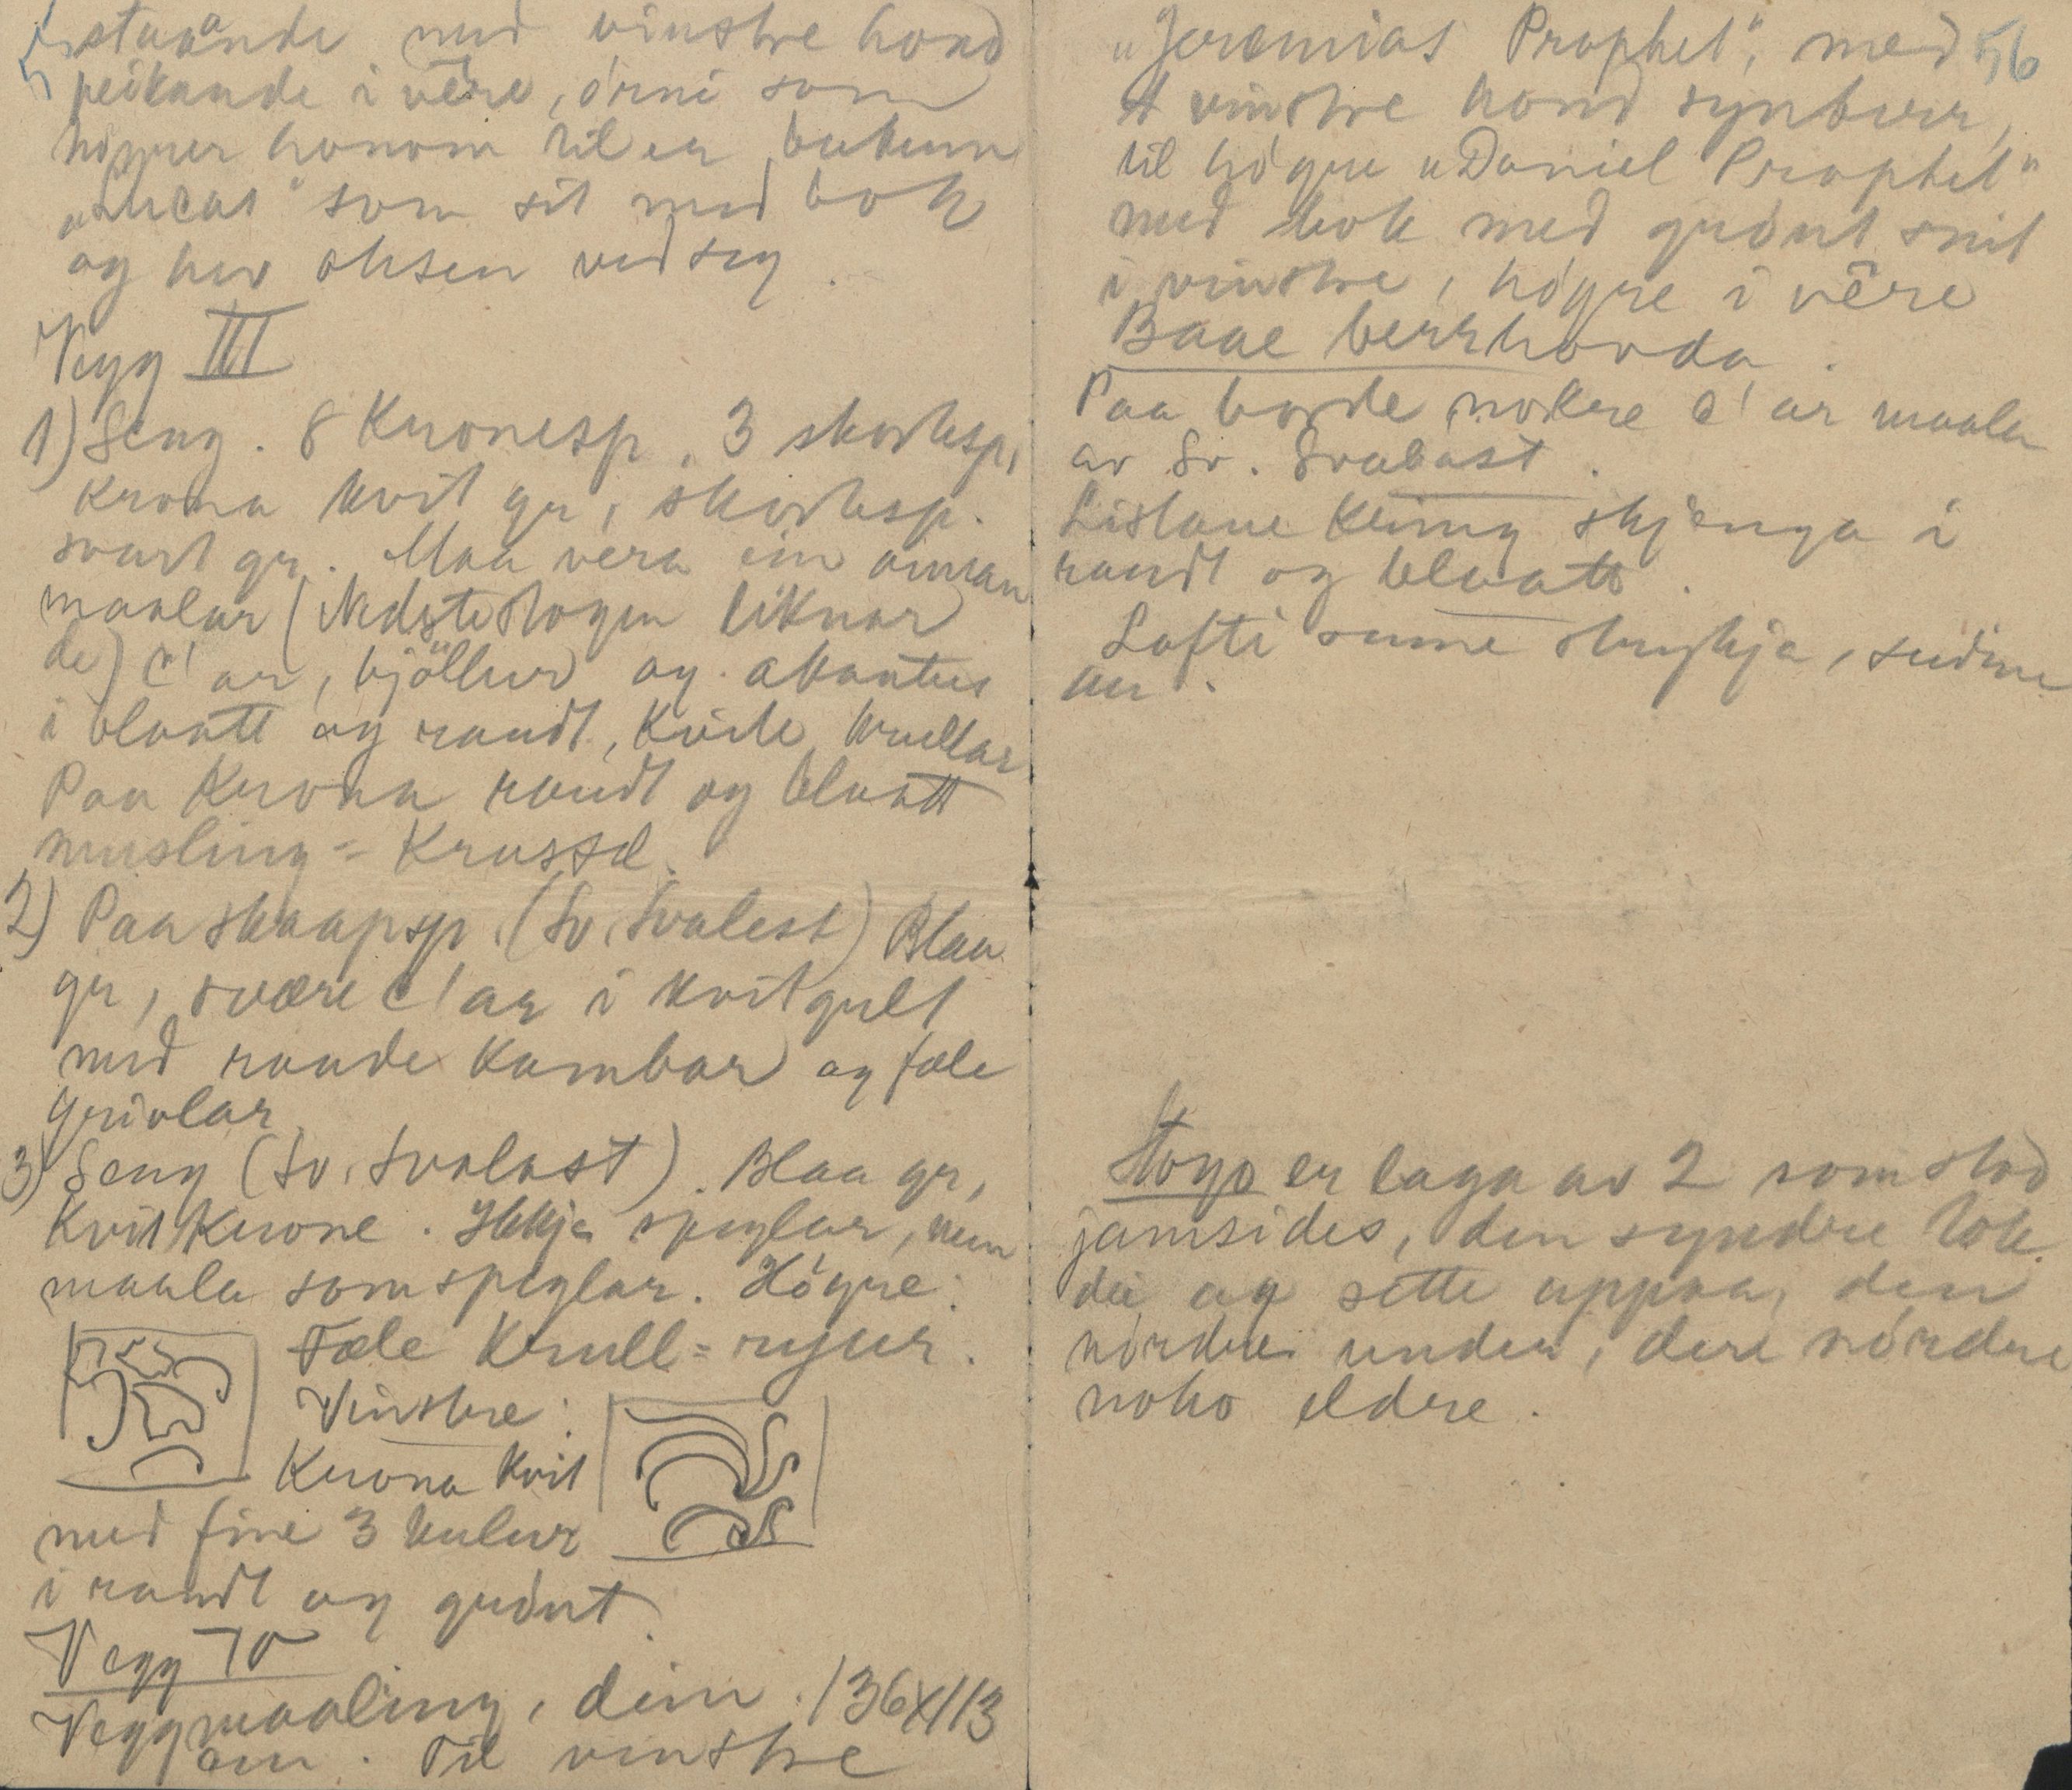 staaande med vinstre hond
peikande i vêre, örni som
höyrer honom til er burtum
"Lucas" som sit med bok
og hev oksen ved seg.
Vegg III
1) Seng. 8 Kronesp. 3 skorlesp,
Krona kvit gr, skorlesp.
svart gr. Maa vera ein annan
maalar (Nedste stogen liknar
de) C' ar, kjöllur og akantus
i blaatt og raudt, kvite krullar
Paa Krona raudt og blaatt
musling = Krussel.
2) Paa skaapsp. (Sv. Svalest) Blaa
gr, svære C' ar i kvitgult
med raude Kambar og fæle
grivlar
3) Seng (Sv. Svalast). Blaa gr,
Kvit Krone. Ikkje speglar, men
maala som speglar. Högre:
Fæle Krull = ryjur.
Vinstre:
Krona kvit
med fine 3 kulur
i raudt og grönt.
Vegg IV
Veggmaaling, dim. 136X113
cm. Til vinstre
56
"Jeremias Prophet", med
vinstre hond synberr,
til högre "Daniel Prophet"
med bok med grönt snit
i vinstre, högre i vêre
Baae berrhovda.
Paa borde nokre C' ar maala
av Sv. Svalast.
Listane kring skjenga i
raudt og blaatt.
Lofti sume strykja, sudme
ker.
Stogo er laga av 2 som stod
jamsides, den syndre tok
dei og sette uppaa, den
nördre under, dere nördre
noko eldre.